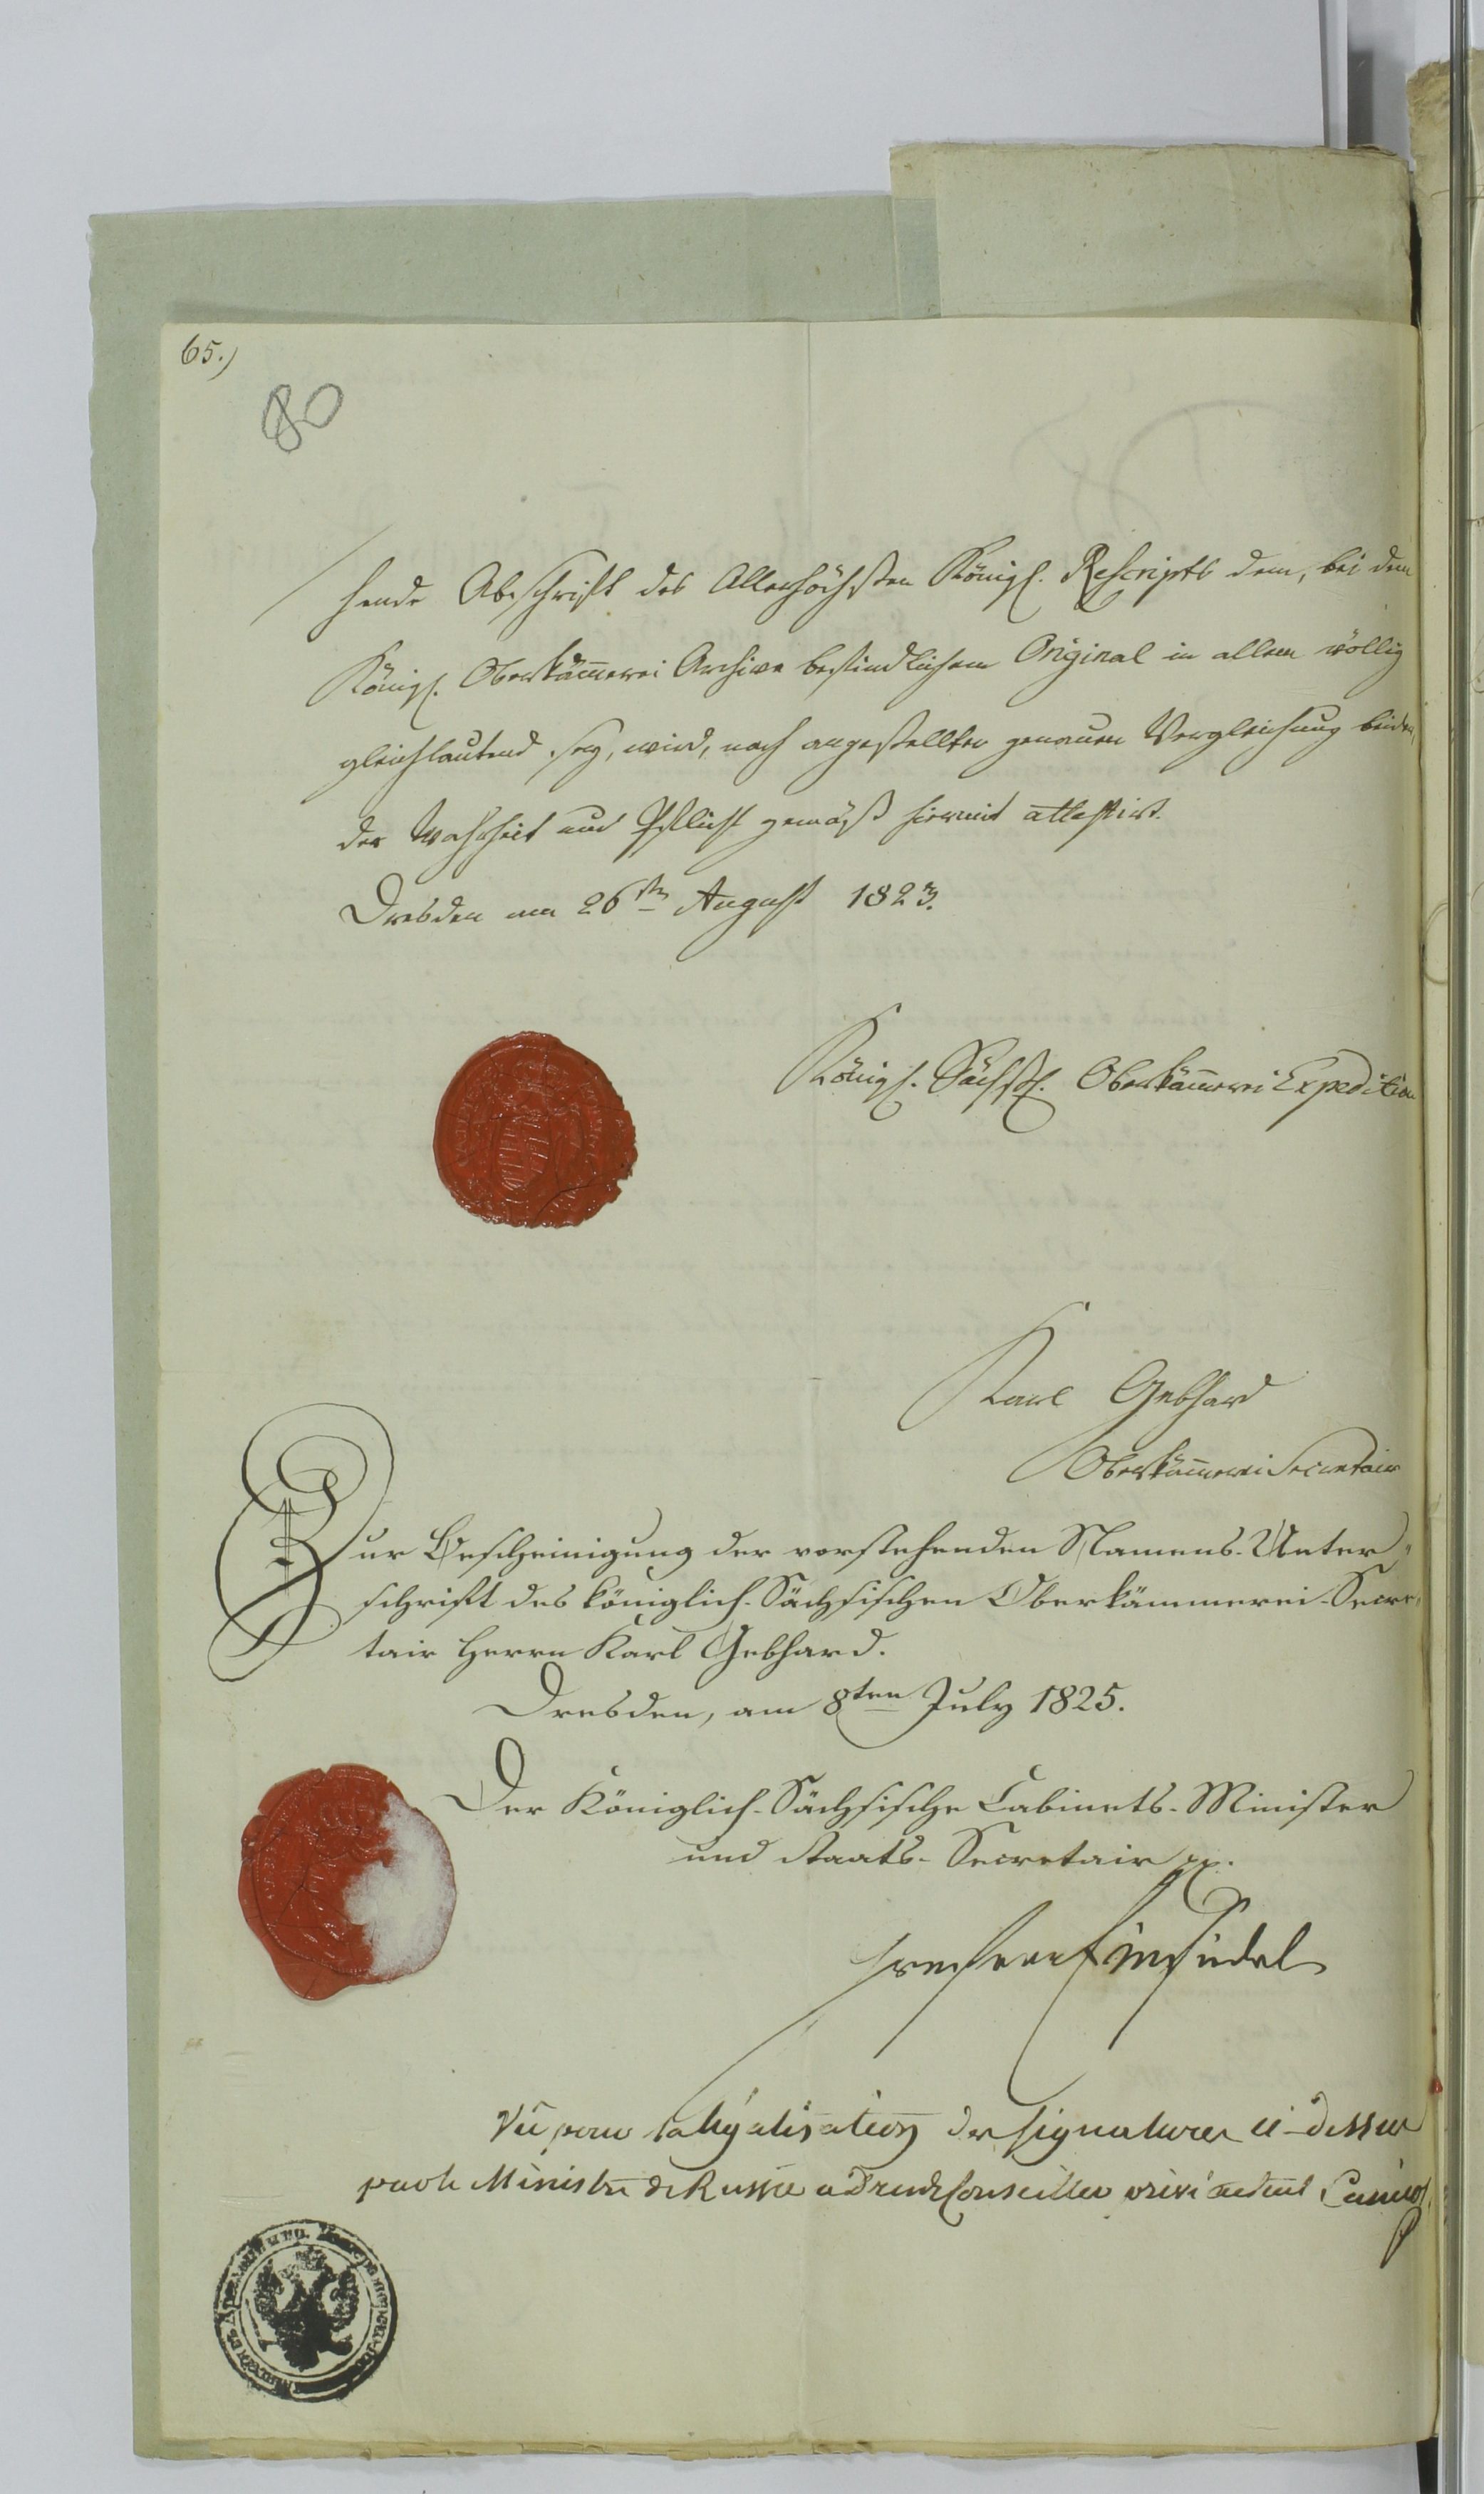 65.)
80
hende Abschrift des Allerhöchsten Königl. Rescripts dem, bei dem
Königl. Oberkam̄erei Archive befindlichem Original in allem völlig
gleichlautend sey, wird, nach angestellter genauer Vergleichung beider,
der Wahrheit und Pflicht gemäß hiermit attestirt.
Dresden am 26ten August 1823.
Königl. Sächß. Oberkäm̄erei Expedition
Karl Gebhard
Oberkäm̄erei Secretair
Zur Bescheinigung der vorstehenden Namens-Unter-
schrift des königlich-Sächsischen Oberkämmerei-Secre-
tair Herrn Karl Gebhard.
Dresden, am 8ten July 1825.
Der Königlich-Sächsische Cabinets-Minister
und Staats-Secretair pp.
Einsiedel
Vû pour la légalisation des signatures ci-dessus
par le Ministre de Russie à Dresde Conseiller privé actuel